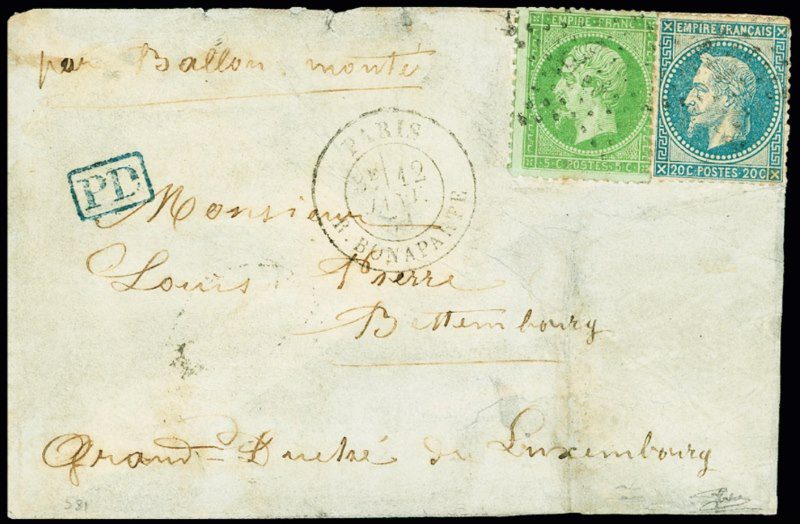 par Ballon monté
EMPIRE FRANC
5 C POSTES 5 C
EMPIRE FRANÇAIS
20C POSTES 20C
PARIS
12
R. BONAPARTE
PD
Monsieur
Louis Pierre
Bettembourg
Grand-Duché de Luxembourg
581